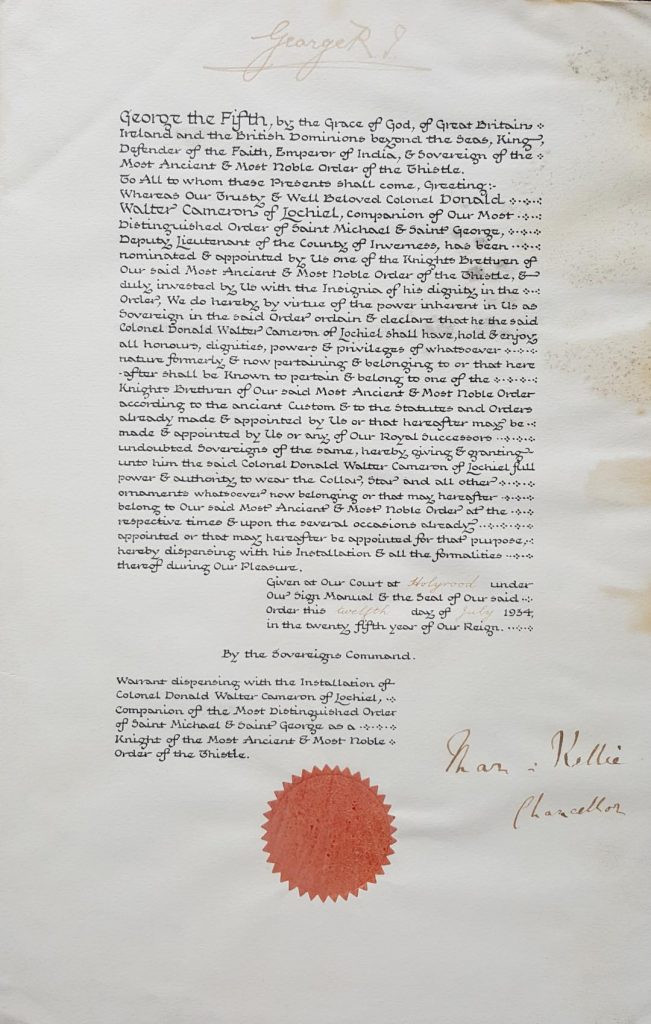 George R I
George the Fifth, by the Grace of God, of Great Britain
Ireland and the British Dominions beyond the Seas, King,
Defender of the Faith, Emperor of India, & Sovereign of the
Most Ancient & Most Noble Order of the Thistle.
To All to whom these Presents shall come, Greeting:-
Whereas Our Trusty & Well Beloved Colonel Donald
Walter Cameron of Lochiel, Companion of Our Most
Distinguished Order of Saint Michael & Saint George,
Deputy Lieutenant of the County of Inverness, has been
nominated & appointed by Us one of the Knights Brethren of
Our said Most Ancient & Most Noble Order of the Thistle, &
duly invested by Us with the Insignia of his dignity in the
Order, We do hereby by virtue of the power inherent in Us as
Sovereign in the said Order ordain & declare that he the said
Colonel Donald Walter Cameron of Lochiel shall have, hold & enjoy
all honours, dignities, powers & privileges of whatsoever
nature formerly & now pertaining & belonging to or that here
-after shall be Known to pertain & belong to one of the
Knights Brethren of Our said Most Ancient & Most Noble Order
according to the ancient Custom & to the Statutes and Orders
already made & appointed by Us or that hereafter may be
made & appointed by Us or any of Our Royal Successors
undoubted Sovereigns of the same, hereby giving & granting
unto him the said Colonel Donald Walter Cameron of Lochiel full
power & authority to wear the Collar, Star and all other
ornaments whatsoever now belonging or that may hereafter
belong to Our said Most Ancient & Most Noble Order at the
respective times & upon the several occasions already
appointed or that may hereafter be appointed for that purpose,
hereby dispensing with his Installation & all the formalities
thereof during Our Pleasure.
Given at Our Court at Holyrood under
Our Sign Manual & the Seal of Our said
Order this twelfth day of July 1934,
in the twenty fifth year of Our Reign.
By the Sovereigns Command.
Warrant dispensing with the Installation of
Colonel Donald Walter Cameron of Lochiel,
Companion of the Most Distinguished Order
of Saint Michael & Saint George as a
Knight of the Most Ancient & Most Noble
Order of the Thistle.
Mar & Kellie
Chancellor